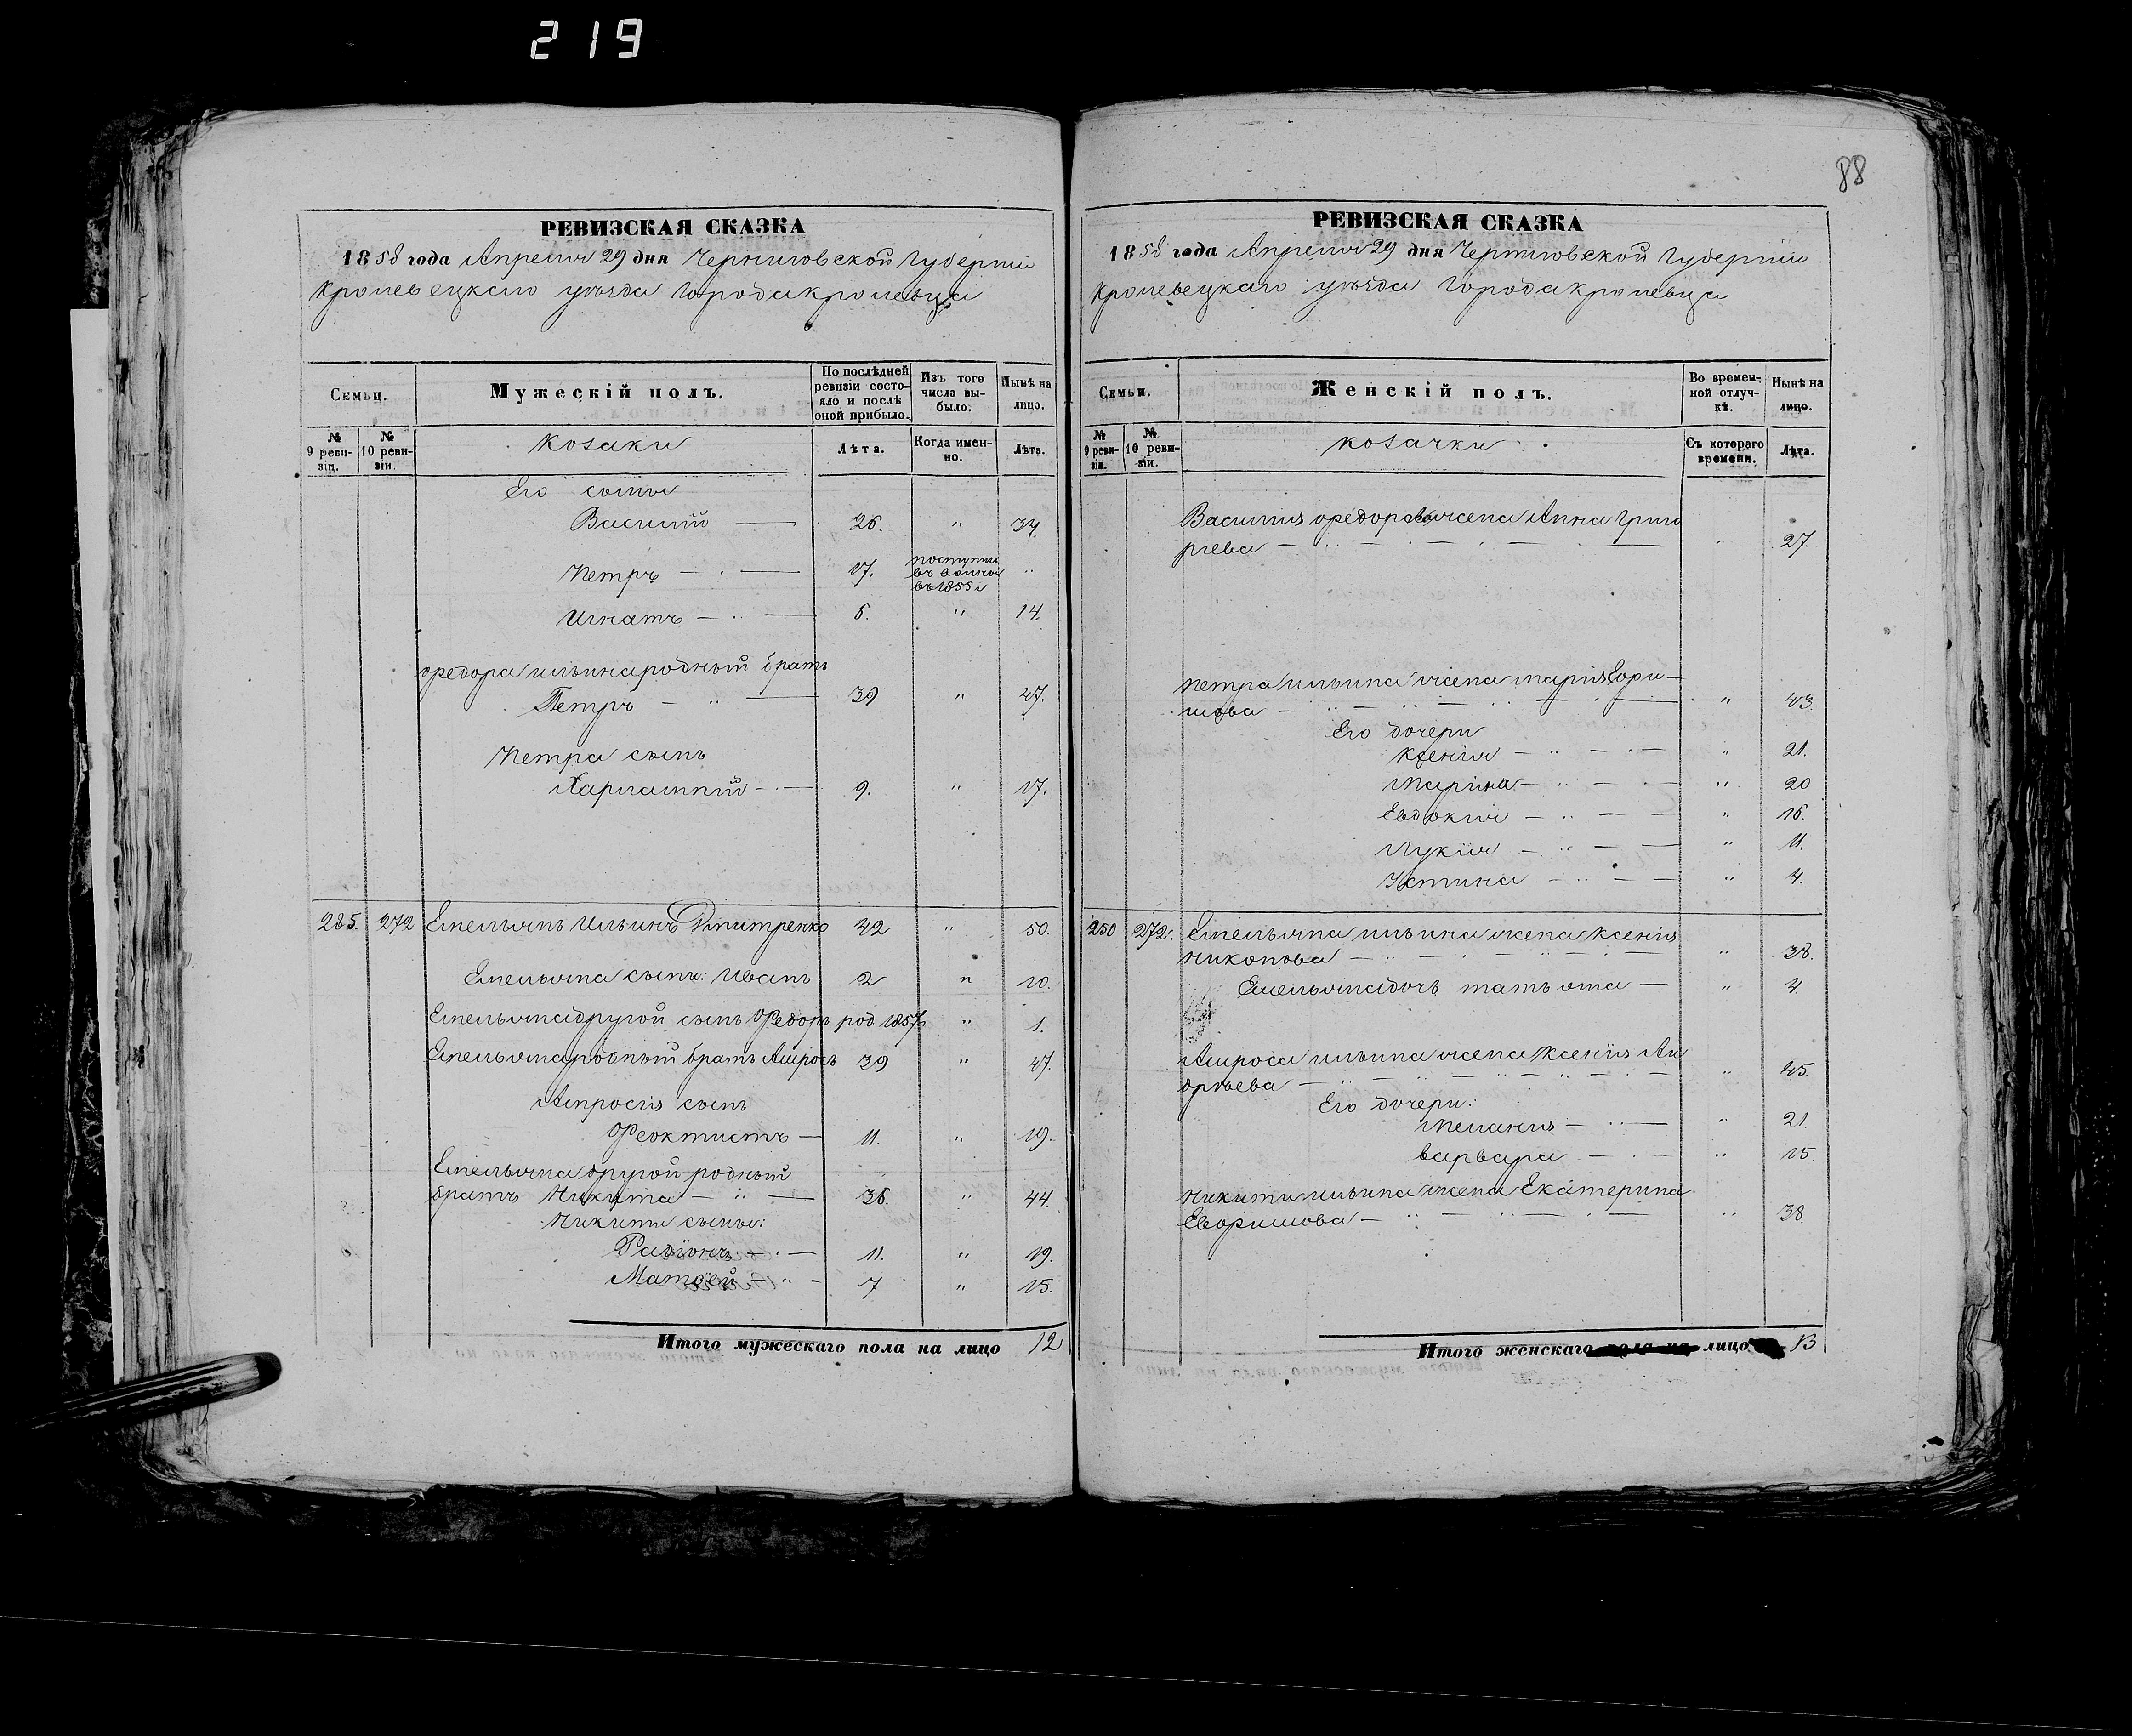 219
88
РЕВИЗСКАЯ СКАЗКА
1858 года Апреля 29 дня Черниговской Губернии
Кролевецкаго уѣзда Города Кролевца
Семьи.
Мужескій полъ.
По послѣдней ревизіи состояло и послѣ оной прибыло.
Изъ того числа выбыло.
Нынѣ на лицо.
№ 9 ревизіи.
№ 10 ревизіи.
Козаки
Лѣта.
Когда именно.
Лѣта.
Его сыны
Василій — 26. " 34.
Петръ — 17. поступил
въ 1855 г
Игнатъ — 6. " 14.
Федора Ильина родный братъ
Петръ — " — 39 " 47.
Петра сынъ
Харлампий — 9. " 17.
285. 272 Емельянъ Ильинъ Дмитренко 42 " 50.
Емельяна сынъ: Иванъ 2 " 10.
Емельяна другой сынъ Федоръ род 1857 " 1.
Емельяна родный братъ Амросъ 39 " 47.
Амросия сынъ
Феоктистъ — 11. " 19.
Емельяна другой родный
братъ Никита — " — 36. " 44.
Никиты сыны:
Радіонъ — 11. " 19.
Матфей — " — 7 " 15.
Итого мужескаго пола на лицо 12
РЕВИЗСКАЯ СКАЗКА
1858 года Апреля 29 дня Черниговской Губернии
Кролевецкаго уѣзда Города Кролевца
Семьи.
Женскій полъ.
Во временной отлучкѣ.
Нынѣ на лицо.
№ 9 ревизіи.
№ 10 ревизіи.
Козачки
Съ котораго времени.
Лѣта.
Василия Федорова жена Анна Григо
рьева — " 27.
Петра Ильина жена Мария Ефи-
мова — " 43.
Его дочери
Ксения — " — " 21.
Марина — " — " 20
Евдокия — " — " 16.
Лукия — " — " 11.
Устина — " — " 4.
250 272. Емельяна Ильина жена Ксения
Никонова — " 38.
Емельяна дочь Татьяна — " 4.
Амроса Ильина жена Ксения Ан
дрѣева — " 45.
Его дочери:
Мелания — " 21.
Варвара — " 15.
Никиты Ильина жена Екатерина
Евфимова — " 38.
Итого женскаго пола на лицо 13